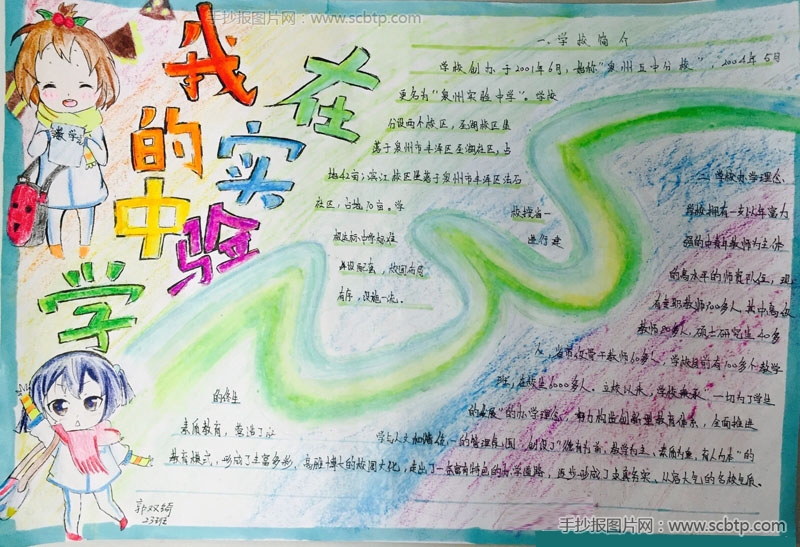 手抄报图片网:www.scbtp.com
我
在
的
实
中
验
学
数学
一、学校简介
学校创办于2001年6月,
“泉州五中分校”,2004年5月
更名为“泉州实验中学”。学校
分设两个校区,圣湖校区隶
属于泉州市丰泽区圣湖社区,占
地42亩;滨江校区隶属于泉州市丰泽区法石
社区,占地70亩。学
校按省一
级达标中学标准
进行建
设配套,校园布局
有序,设施一流。
二、学校办学理念
学校拥有一支以年富力
强的中青年教师为主体
的高水平的师资队伍,现
有专职教师700多人,其中高级
教师80多人,硕士研究生40多
人,省市级骨干教师60多人,学校目前有100多个教学
班,在校生6000多人。立校以来,学校秉承一切为了学生
的终生
的发展”的办学理念,努力构造创新型教育体系,全面推进
素质教育,营造了
学与人文和谐统一的管理氛围,创设了“德育为首、教学为主、素质为重、育人为本”的
教育模式,形成了丰富多彩、高雅博大的校园文化,走出了一条富有特色的办学道路,逐步形成了求真务实、大器大气的名校气质。
郭双琦
23班
手抄报图片网:www.scbtp.com